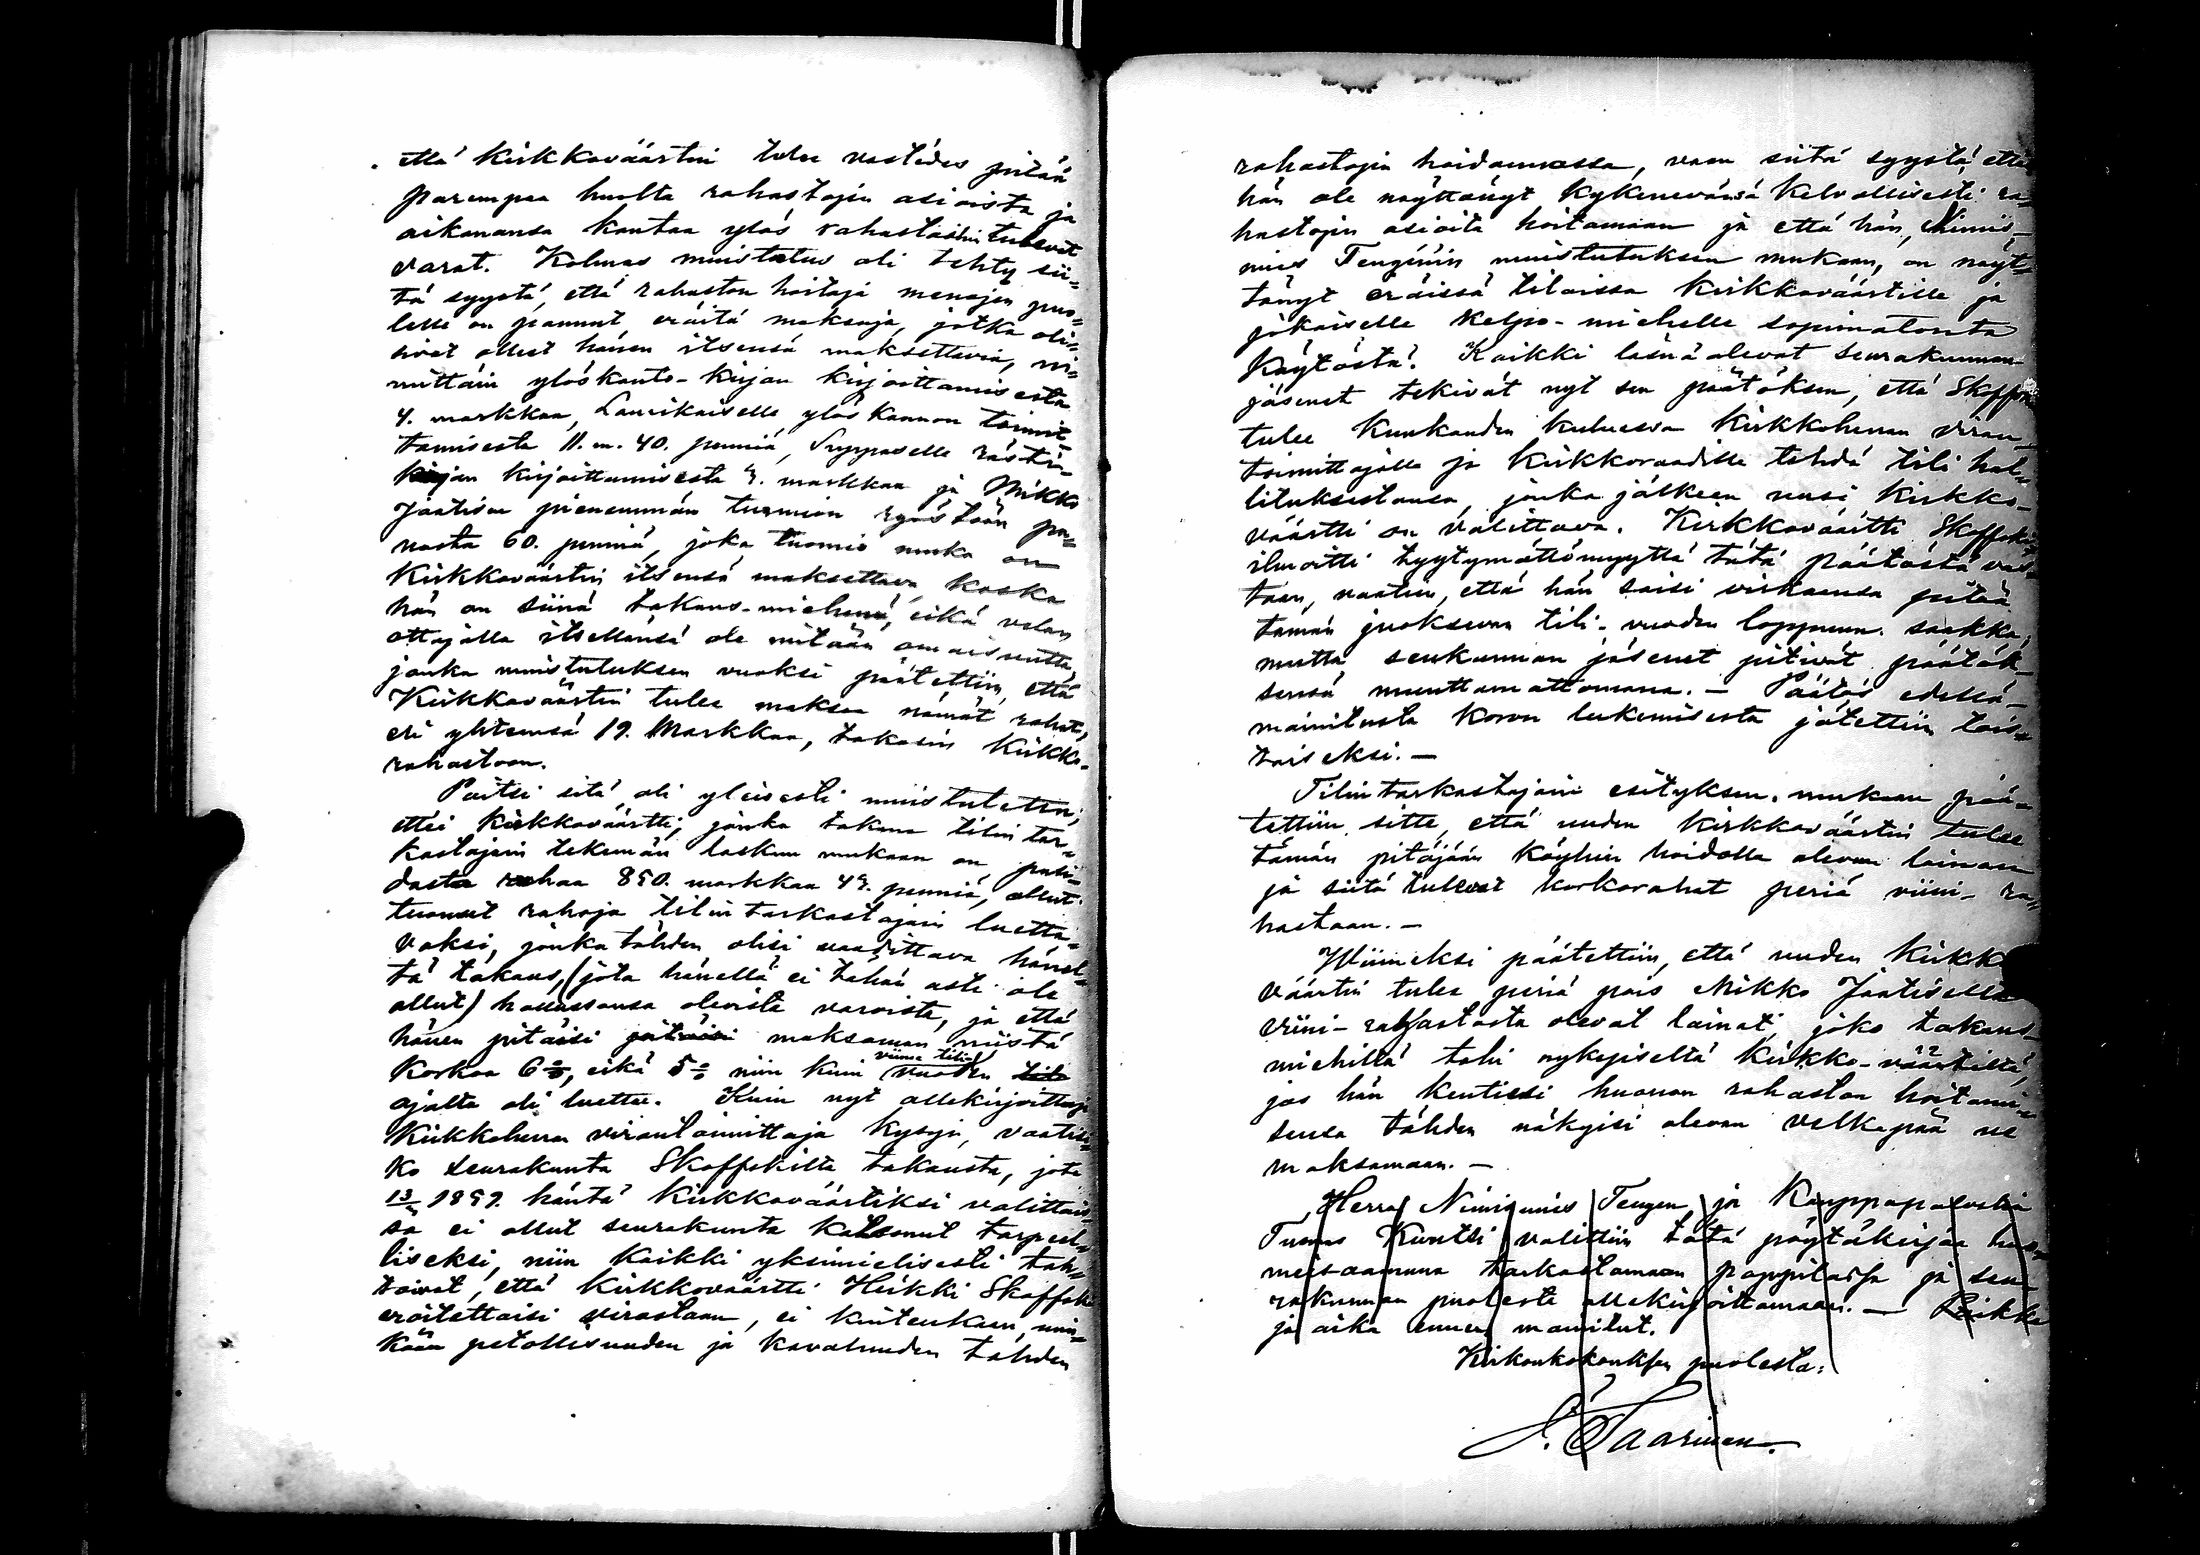 että Kirkkoväärtin tulee vastedes pitää
parempaa huolta rahastojen asioista ja
aikanansa kantaa ylös rahastoihin tulevat
varat. Kolmas muistutus oli tehty sii-
tä syystä, että rahaston hoitaja menojen puo-
lelle on pannut eräitä maksuja, jotka oli-
sivat olleet hänen itsensä maksettavia, ni-
mittäin ylöskanto-kirjan kirjoittamisesta
4. markkaa, Laurikaiselle ylöskannon toimit-
tamisesta 11. m. 40. penniä, Suppaselle rästi-
kirjan kirjoittamisesta 3. markkaa ja Mikko
Jaatisen pienemmän tuomion ryöstöön pa-
nosta 60. penniä, joka tuomio muka on
Kirkkoväärtin itsensä maksettava, koska
hän on siinä takaus-miehenä, eikä velan
ottajalla itsellänsä ole mitään omaisuutta,
jonka muistutuksen vuoksi päätettiin, että
Kirkkoväärtin tulee maksaa nämät rahat,
eli yhteensä 19. Markkaa, takasin Kirkko-
rahastoon.
Paitsi sitä oli yleisesti muistutettu,
ettei Kirkkoväärtti, jonka takana tilin tar-
kastajain tekemän laskun mukaan on puh-
dasta rahaa 850. markkaa 49. penniä, ollut
tuonut rahoja tilin tarkastajain luetta-
vaksi, jonka tähden olisi vaadittava hänel-
tä takaus, (jota hänellä ei tähän asti ole
ollut) hallussansa olevista varoista, ja että
hänen pitäisi pitäisi maksaman niistä
Korkoa 6 %, eikä 5 % niin kuin viime tili
vuoden tili
ajalta oli luettu. Kuin nyt allekirjoittanut
Kirkkoherran virantoimittaja kysyi, vaatisi-
ko seurakunta Skaffskilta takausta, jota
1859. häntä Kirkkoväärtiksi valittais-
sa ei ollut seurakunta katsonut tarpeel-
liseksi, niin kaikki yksimielisesti tah-
toivat, että Kirkkoväärtti Heikki Skaffski
eroitettaisi virastaan, ei kuitenkaan min-
kään petollisuuden ja kavaluuden tähden
rahastojen hoidannossa, vaan siitä syystä, ettei
hän ole näyttänyt kykenevänsä kelvollisesti ra-
hastojen asioita hoitamaan ja että hän, Nimis-
mies Tengénin muistutuksen mukaan, on näyt-
tänyt eräissä tiloissa Kirkkoväärtille ja
jokaiselle kelpo-miehelle sopimatonta
käytöstä. Kaikki läsnä olevat seurakunnan
jäsenet tekivät nyt sen päätöksen, että Skaffskin
tulee Kuukauden kuluessa Kirkkoherran viran
toimittajalle ja Kirkkoraadille tehdä tili hal-
lituksestansa, jonka jälkeen uusi Kirkko-
väärtti on valittava. Kirkkoväärtti Skaffski
ilmoitti tyytymättömyyttä tätä päätöstä vas-
taan, vaatien, että hän saisi virkaansa pitää
tämän juoksevan tili-vuoden loppuun saakka,
mutta seurakunnan jäsenet pitivät päätök-
sensä muuttamattomana. — Päätös edellä-
mainitusta koron lukemisesta jätettiin tois-
taiseksi. —
Tilintarkastajain esityksen mukaan pää-
tettiin sitte, että uuden Kirkkoväärtin tulee
tämän pitäjään köyhien hoidolla olevan lainan
ja siitä tulevat korkorahat periä viini-ra-
hastoon. —
Wiimeksi päätettiin, että uuden Kirkko
väärtin tulee periä pois Mikko Jaatisella
viini-rahastosta olevat lainat, joko takaus-
miehiltä tahi nykyiseltä Kirkko-väärtiltä,
jos hän kentiesi huonon rahaston hoitami-
sensa tähden näkyisi olevan velkapää ne
maksamaan. —
Herra Nimismies Tengen ja Kauppapalvelia
Tuomas Kuntsi valittiin tätä pöytäkirjaa
tarkastamaan pappilassa ja seu-
rakunnan puolesta allekirjoittamaan. — Paikka
ja aika ennen mainitut.
Kirkonkokouksen puolesta:
J. Saarinen.